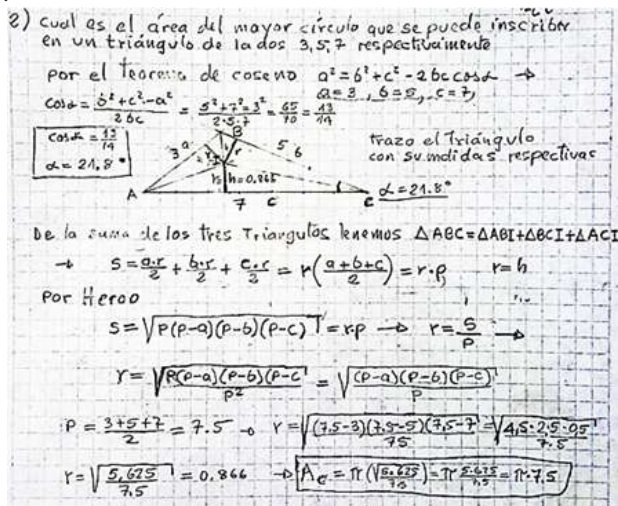 2) cual es el área del mayor círculo que se puede inscribir
en un triángulo de lados 3, 5, 7 respectivamente
por el Teorema de coseno a² = b² + c² - 2bc cosα →
a=3, b=5, c=7,
cosα = b²+c²-a² / 2bc = 5²+7²-3² / 2·5·7 = 65/70 = 13/14
cosα = 13/14
α = 21.8°
3 a B 5 b
r r
r= h=0.866
A 7 c C
α = 21.8°
trazo el Triángulo
con su mdidas respectivas
De la suma de los tres Triangulos tenemos △ABC = △ABI + △BCI + △ACI
→ S = a·r/2 + b·r/2 + c·r/2 = r(a+b+c/2) = r·p, r=h
Por Heron
S = √P(P-a)(P-b)(P-c) = r·p → r = S/P →
r = √P(P-a)(P-b)(P-c / P² = √(P-a)(P-b)(P-c) / P
P = 3+5+7 / 2 = 7.5 → r = √(7.5-3)(7.5-5)(7.5-7 / 75 = √4,5·2.5·05 / 7.5
r = √5,625 / 7.5 = 0.866 → Ac = π(√5.625/7.5) = π 5.625/7.5 = π·7.5